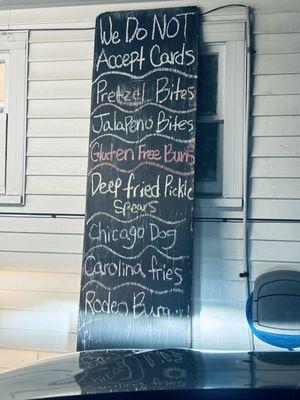 We Do NOT
Accept Cards
Pretzel Bites
Jalapeño Bites
Gluten Free Buns
Deep fried Pickle
Spears
Chicago Dog
Carolina fries
Rodeo Burger